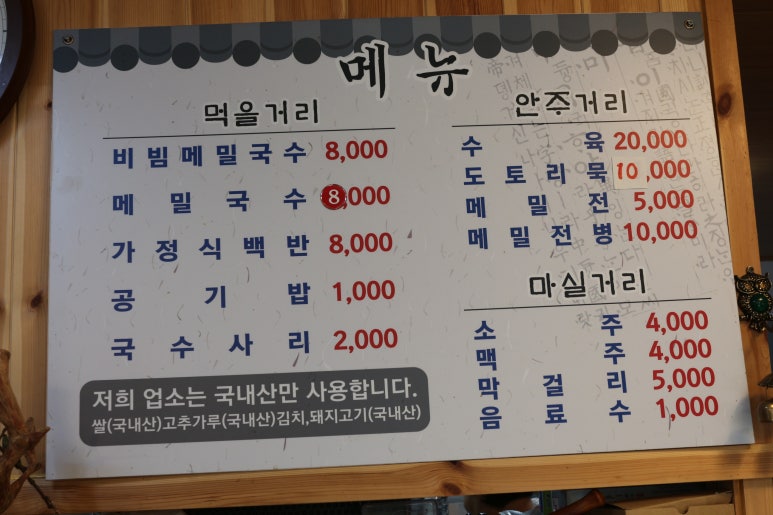 메뉴
먹을거리
비빔메밀국수 8,000
메밀국수 8,000
가정식백반 8,000
공기밥 1,000
국수사리 2,000
저희 업소는 국내산만 사용합니다.
쌀(국내산)고추가루(국내산)김치,돼지고기(국내산)
안주거리
수육 20,000
도토리묵 10,000
메밀전 5,000
메밀전병 10,000
마실거리
소주 4,000
맥주 4,000
막걸리 5,000
음료수 1,000